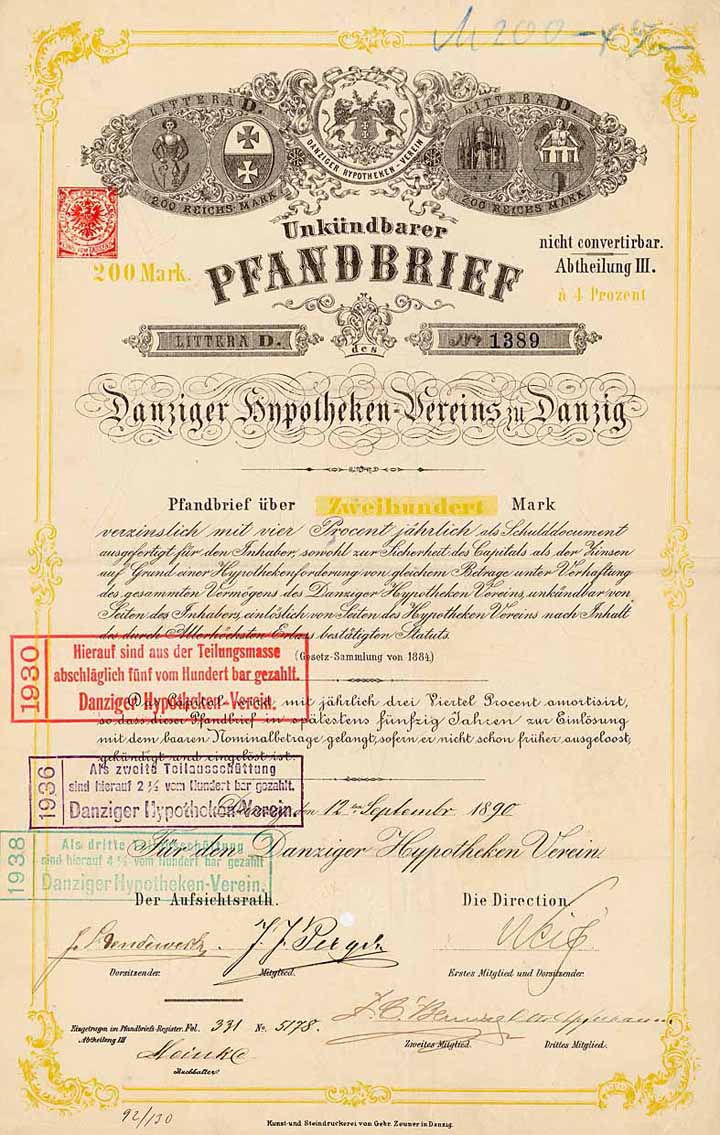 M 200 –
LITTERA D.
200 REICHS-MARK
DANZIGER HYPOTHEKEN-VEREIN
LITTERA D.
200 REICHS MARK
Unkündbarer
200 Mark.
PFANDBRIEF
nicht convertirbar.
Abtheilung III.
à 4 Prozent
LITTERA D.
des
No. 1389
Danziger Hypotheken-Vereins zu Danzig
Pfandbrief über Zweihundert Mark
verzinslich mit vier Procent jährlich als Schulddocument
ausgefertigt für den Inhaber, sowohl zur Sicherheit des Capitals als der Zinsen
auf Grund einer Hypothekenforderung von gleichem Betrage unter Verhaftung
des gesammten Vermögens des Danziger Hypotheken Vereins, unkündbar von
Seiten des Inhabers, einlöslich von Seiten des Hypotheken Vereins nach Inhalt
des durch Allerhöchsten Erlass bestätigten Statuts.
(Gesetz-Sammlung von 1884)
1930
Hierauf sind aus der Teilungsmasse
abschläglich fünf vom Hundert bar gezahlt.
Danziger Hypotheken-Verein.
Das Capital wird mit jährlich drei Viertel Procent amortisirt,
so dass dieser Pfandbrief in spätestens fünfzig Jahren zur Einlösung
mit dem baaren Nominalbetrage gelangt, sofern er nicht schon früher ausgeloost,
gekündigt und eingelöst ist.
1936
Als zweite Teilausschüttung
sind hierauf 2 ½ vom Hundert bar gezahlt.
Danziger Hypotheken-Verein.
Danzig, den 12ten September 1890
1938
Als dritte Teilausschüttung
sind hierauf 4 ½ vom Hundert bar gezahlt
Danziger Hypotheken-Verein.
Für den Danziger Hypotheken Verein.
Der Aufsichtsrath.
Die Direction
Vorsitzender.
Mitglied.
Erstes Mitglied und Vorsitzender.
Eingetragen im Pfandbriefs-Register. Fol. 331 No. 5178.
Abtheilung III
Zweites Mitglied.
Drittes Mitglied.
Meinke
Buchhalter
92/130
Kunst-und Steindruckerei von Gebr. Zeuner in Danzig.